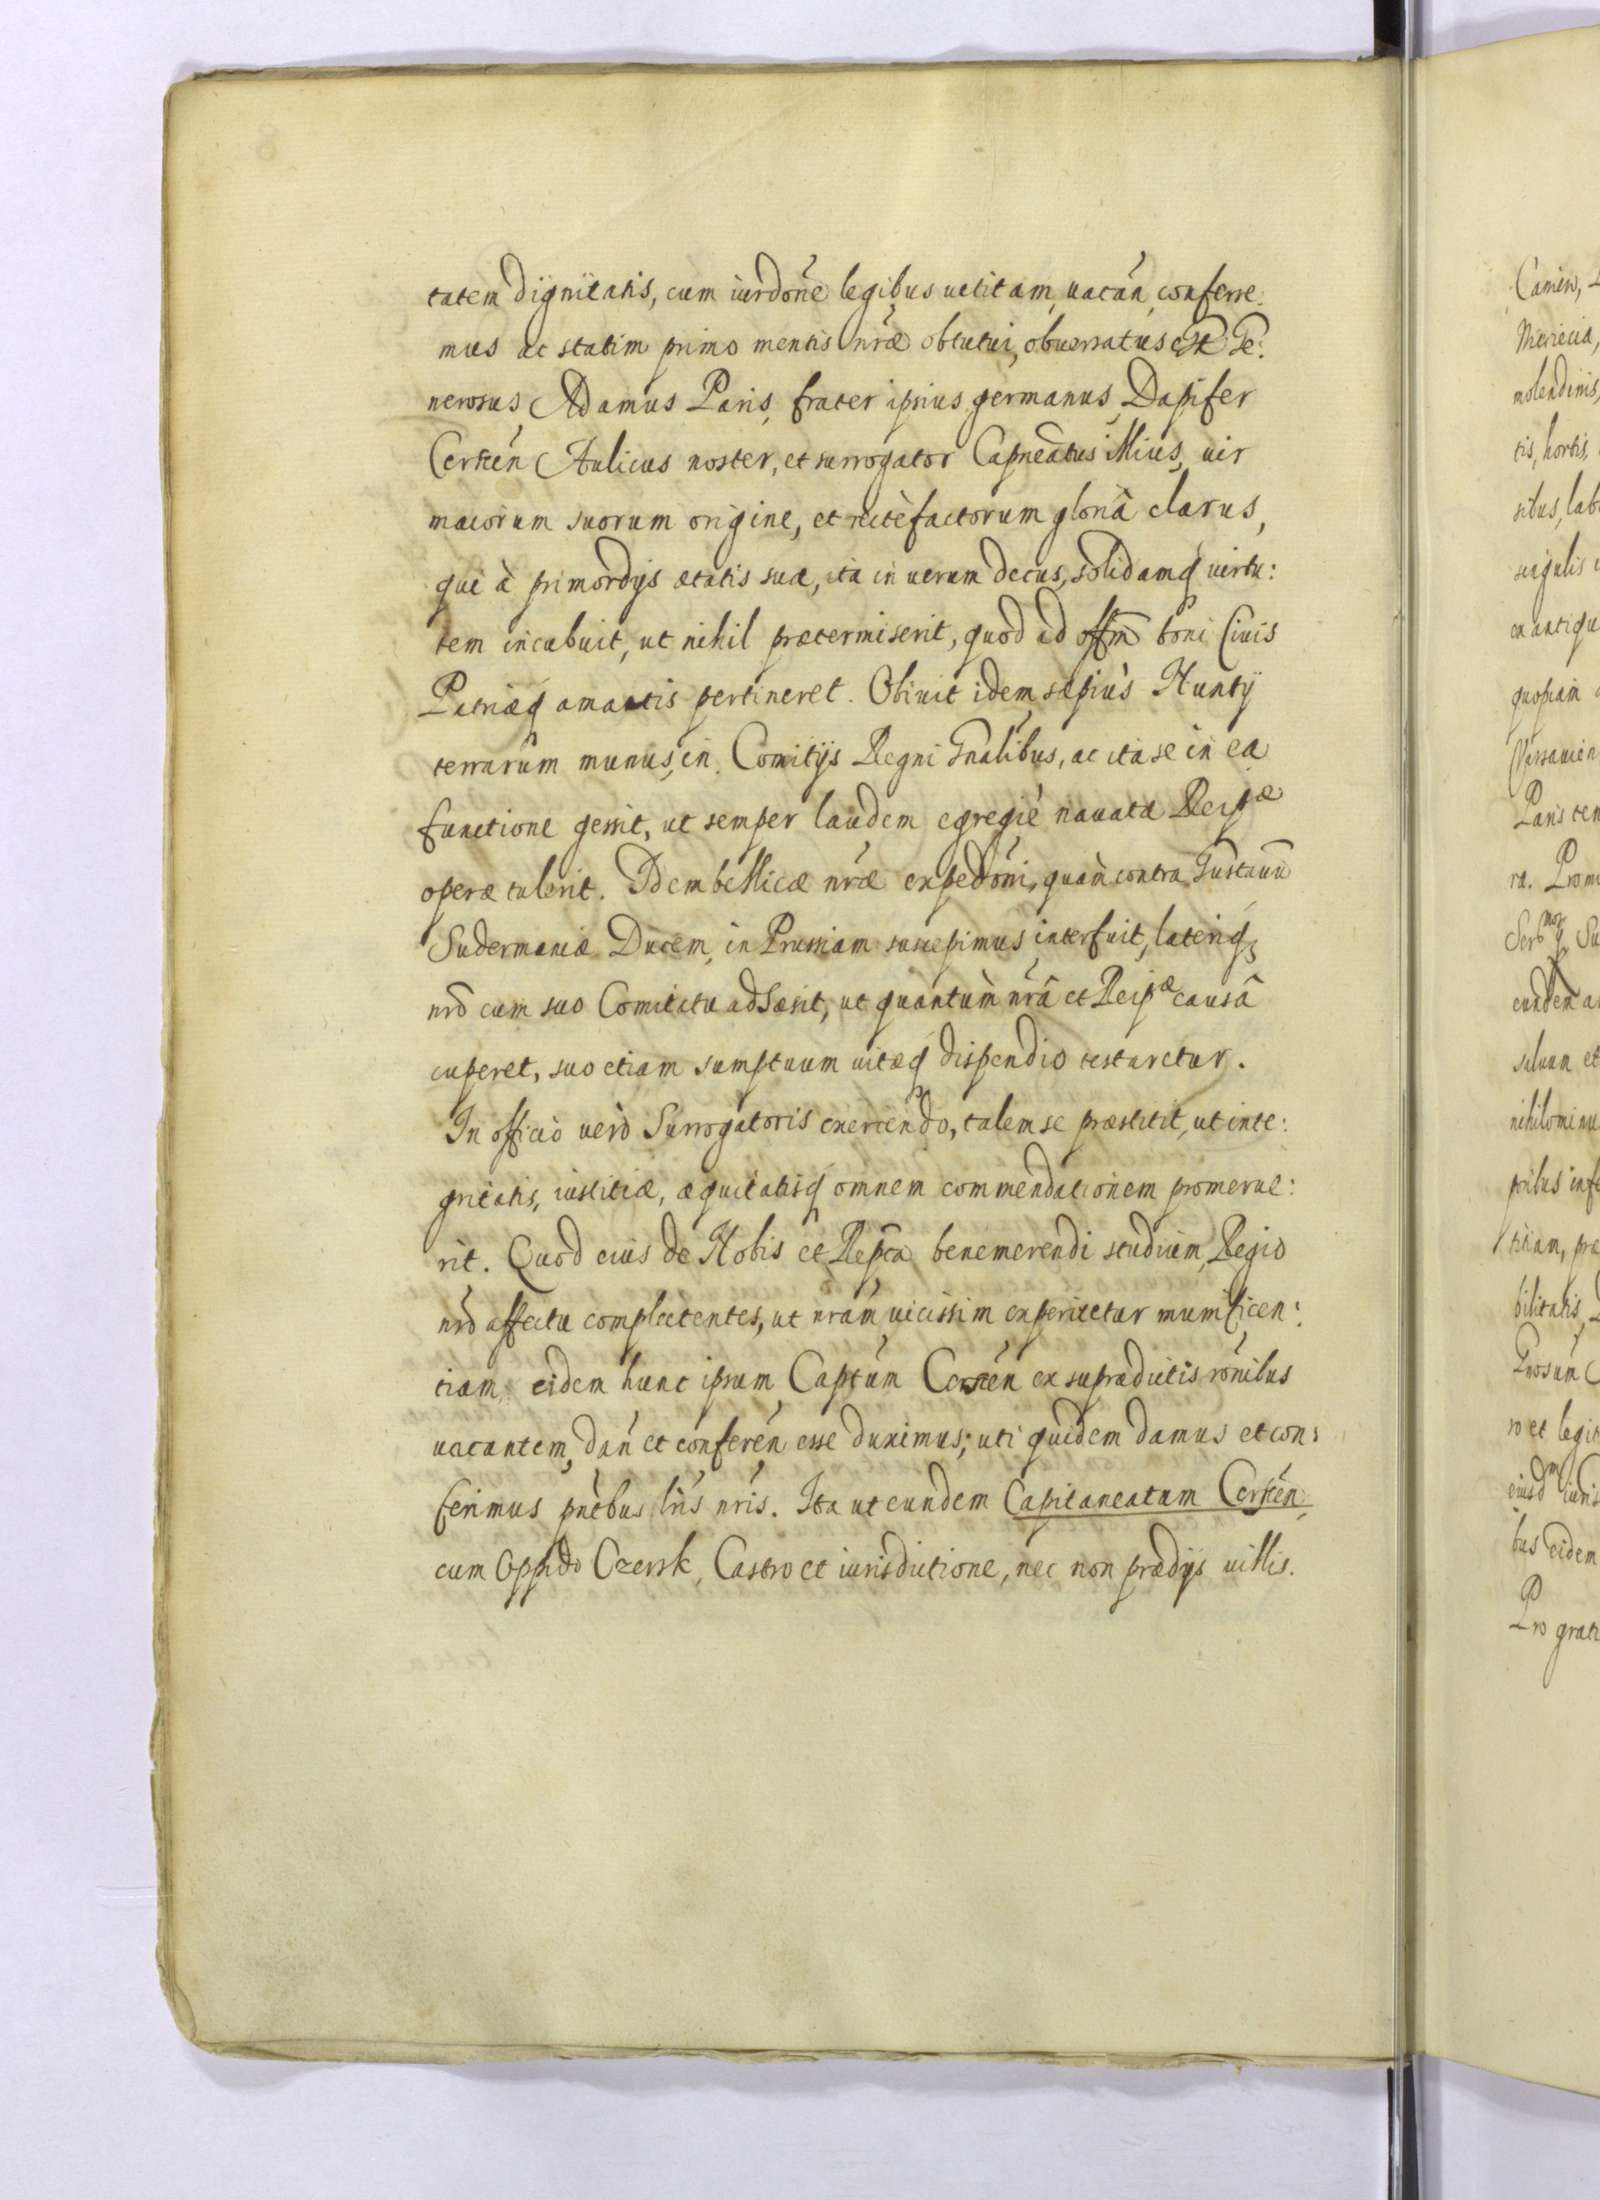 tatem dignitatis, cum iurdone legibus uetitam, uacan, conferre:
mus ac statim primo mentis nrae obtutui, obuersatus est Ge:
nerosus Adamus Paris, frater ipsius germanus, Dapifer
Cersen Aulicus noster, et surrogator Capneatus illius, uir
maiorum suorum origine, et rectè factorum gloriâ clarus,
qui à primordijs aetatis suae, ita in uerum decus, solidamq uirtu:
tem incubuit, ut nihil praetermiserit, quod ad offm boni Ciuis
Patriaeq amantis pertineret. Obiuit idem saepiùs Nuntij
terrarum munus, in Comitijs Regni Gnalibus, ac ita se in ea
functione gessit, ut semper laudem egregiè nauatae Reipae
operae tulerit. Idem bellicae nrae expedoni, quam contra Gustauu
Sudermaniae Ducem, in Prussiam suscepimus, interfuit, lateriq
nro cum suo Comitatu adhaesit, ut quantùm nrâ et Reipae causâ
cuperet, suo etiam sumptuum uitaeq dispendio testaretur.
In officio uerò Surrogatoris exercendo, talem se praestitit, ut inte:
gritatis, iustitiae, aequitatisq omnem commendationem promerue:
rit. Quod eius de Nobis et Repca benemerendi studium, Regio
nro affectu complectentes, ut nram uicissim experiretur munificen:
tiam, eidem hunc ipsum Captum Cersen ex supradictis ronibus
uacantem, dan et conferen esse duximus; uti quidem damus et con:
ferimus pntbus lris nris. Ita ut eundem Capitaneatum Cersen,
cum Oppido Czersk, Castro et iurisdictione, nec non praedijs uillis.
Camen,
molendinis,
tis, hortis,
sibus, lab
singulis
ex antiqu
quopiam
Paris ten
ra. Prom
eundem a
saluam et
nihilominu
bilitatis,
ro et legit
bus eidem
Pro grati